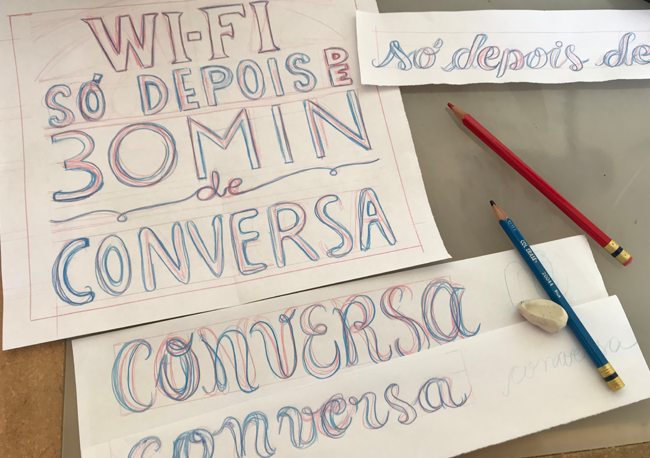 WI-FI
SÓ DEPOIS DE
30 MIN
de
CONVERSA
só depois de
CONVERSA
conversa
conversa